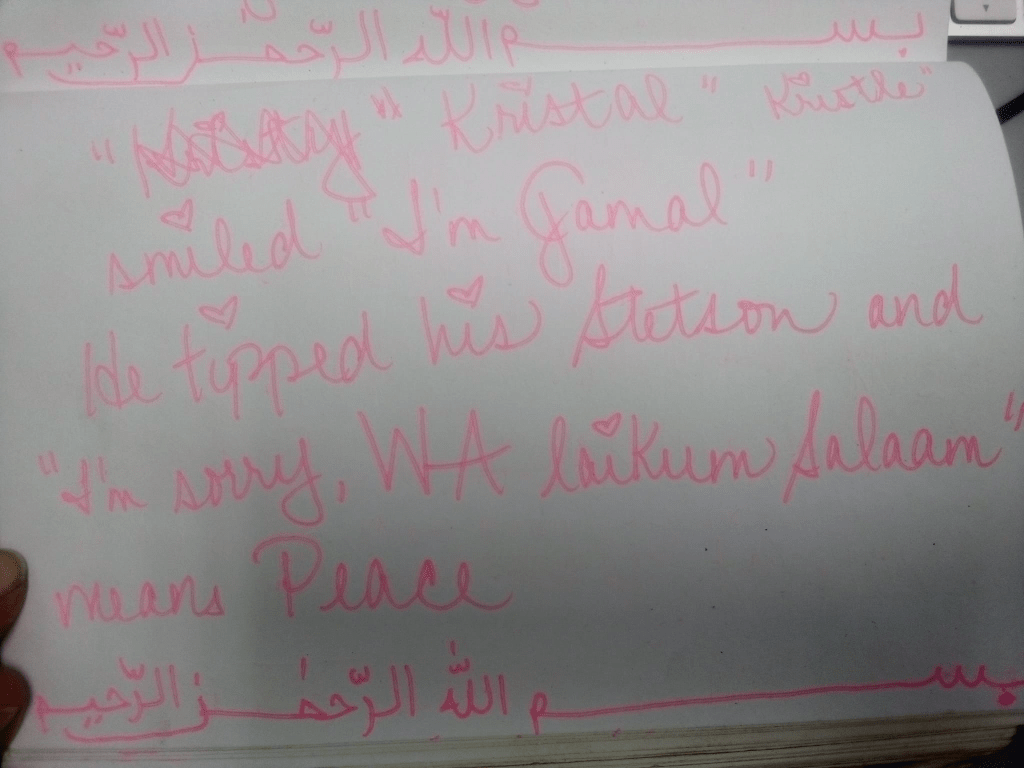 بسم الله الرّحمٰن الرّحيم
" " Kristal " Kristle"
smiled "I'm Gamal"
He tipped his Stetson and
"I'm sorry, WA laikum Salaam"
means Peace
بسم اللّٰه الرّحمٰن الرّحيم